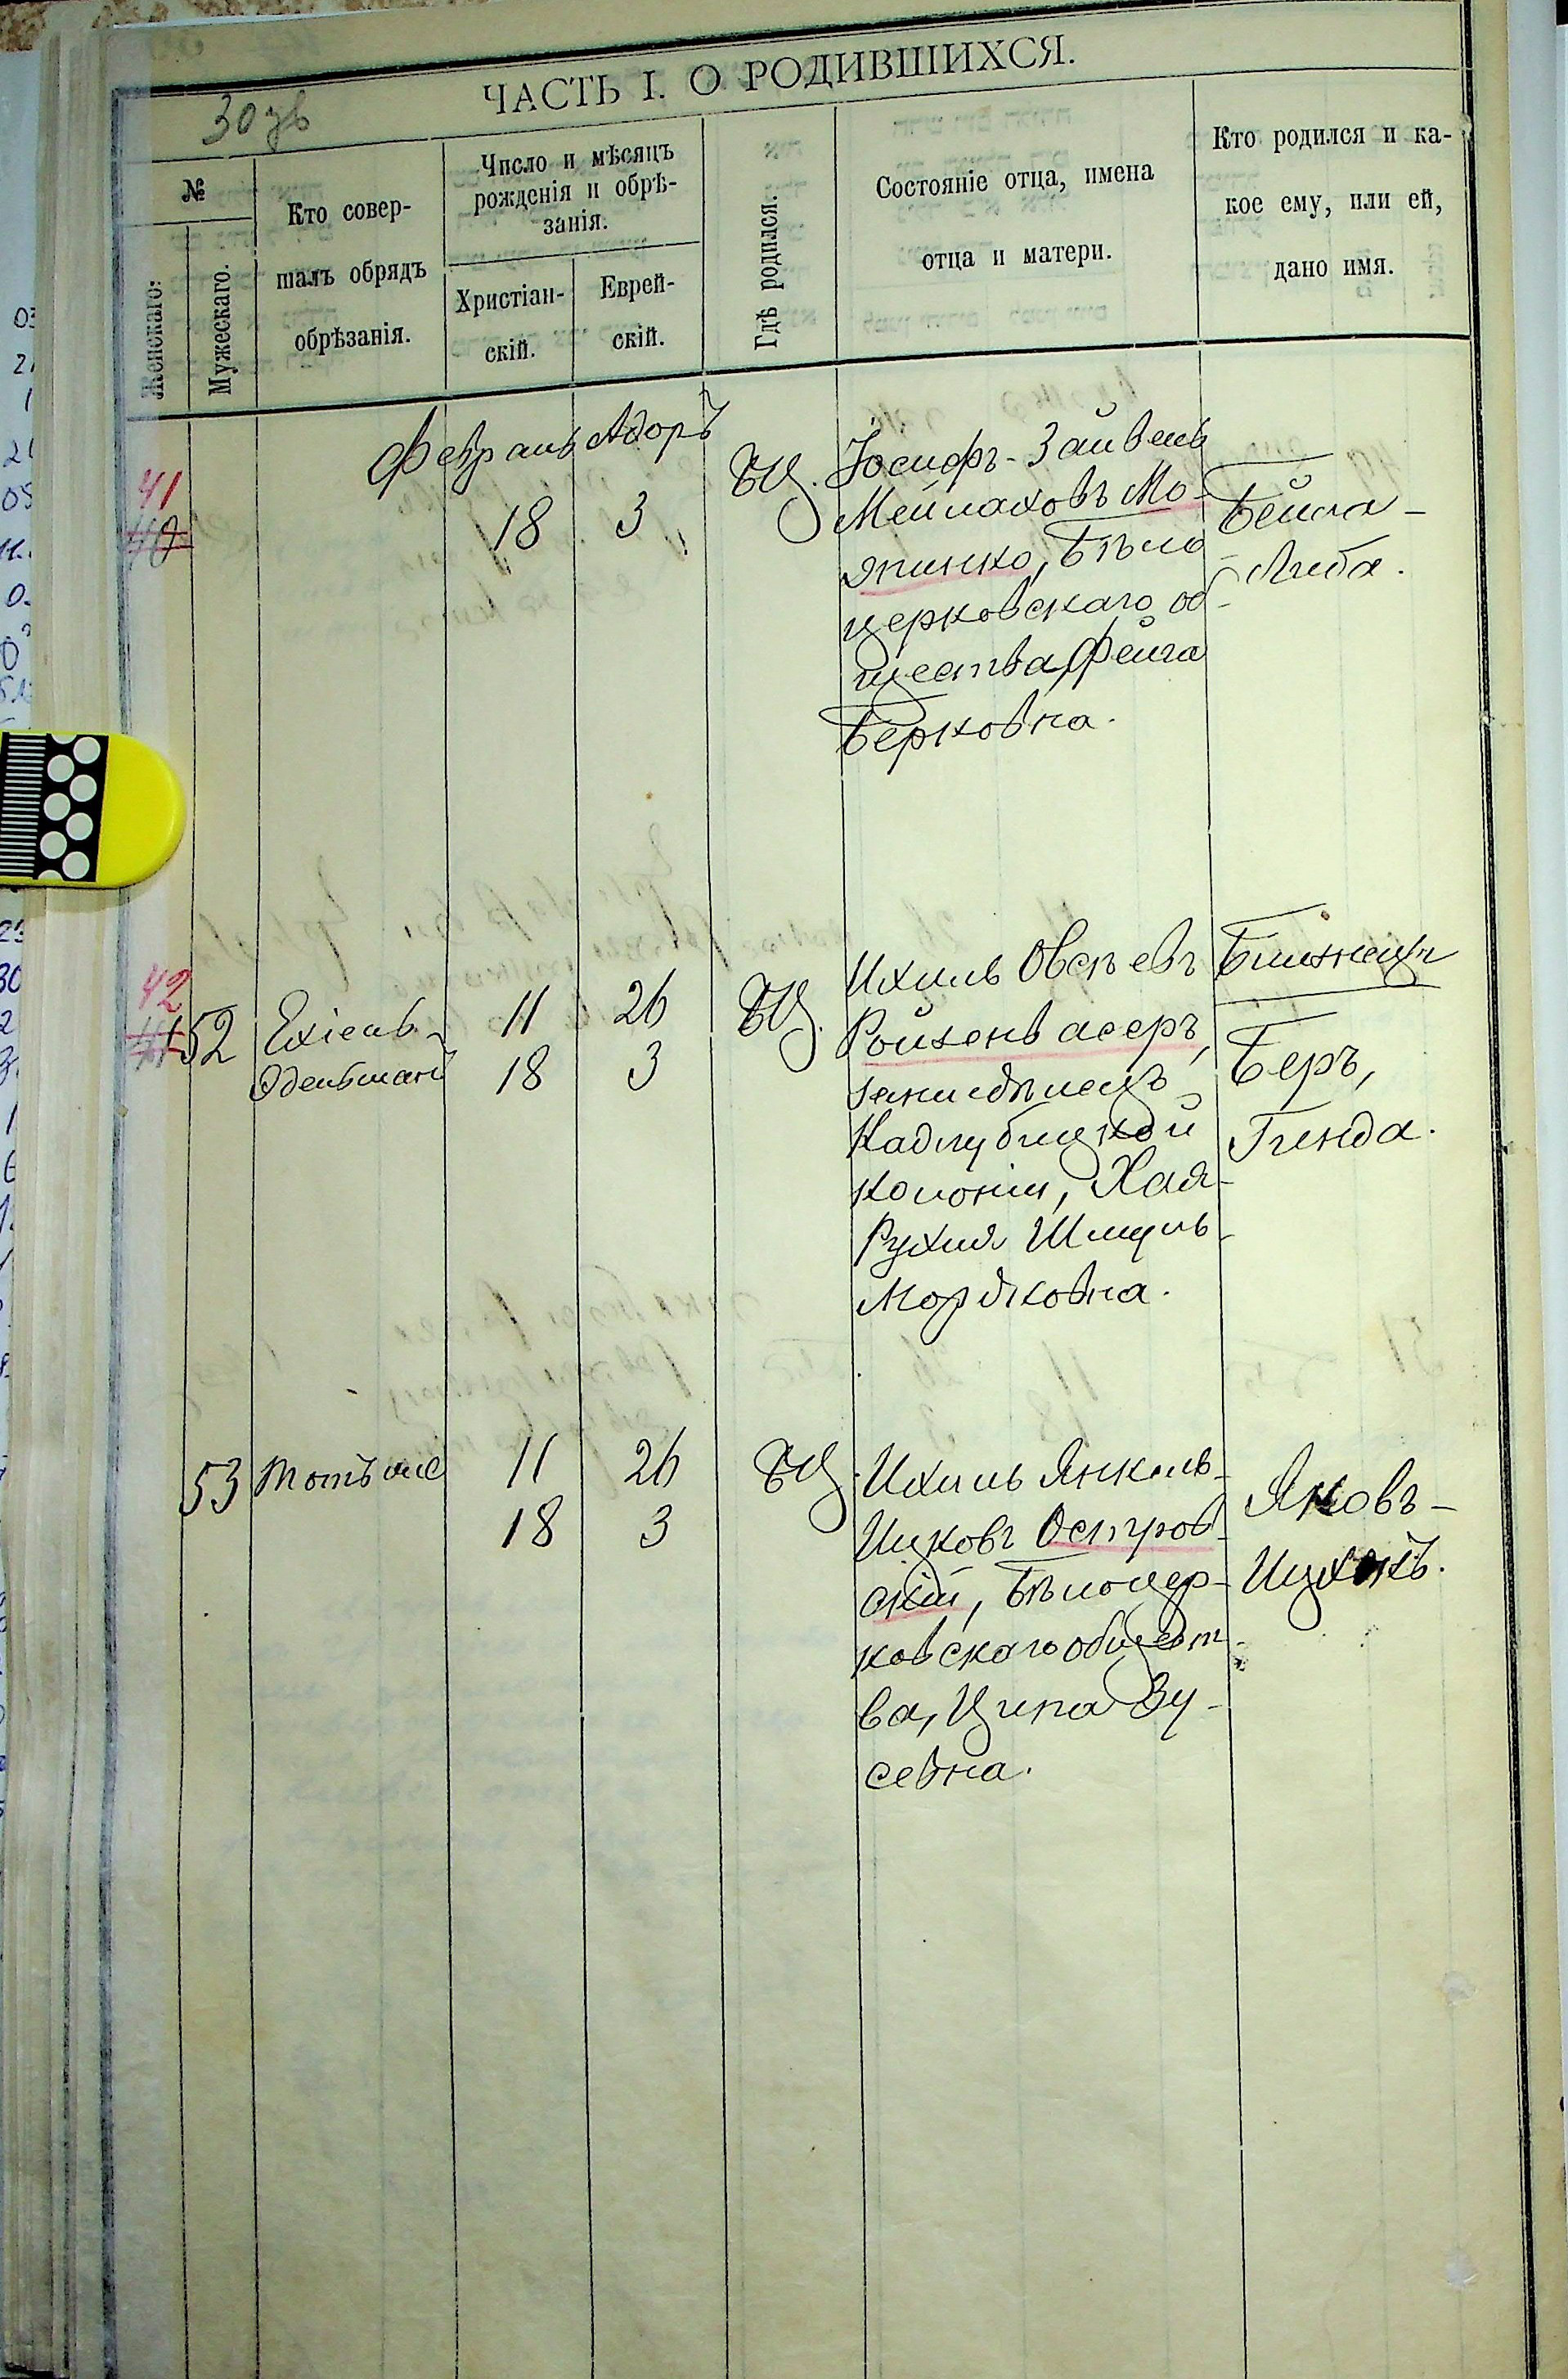 30 зв
ЧАСТЬ I. О РОДИВШИХСЯ.
№
Женскаго.
Мужескаго.
Кто совер-
шалъ обрядъ
обрѣзанія.
Число и мѣсяцъ
рожденія и обрѣ-
занія.
Христіан-
скій.
Еврей-
скій.
Гдѣ родился.
Состояніе отца, имена
отца и матери.
Кто родился и ка-
кое ему, или ей,
дано имя.
Февраль Адоръ
41
40
18 3
БЦ.
Іосифъ-Зайвель
Мейлаховъ Мо-
япинко, Бѣло-
церковскаго об-
щества, Фейга
Берковна.
Бейла-
Либа.
42
41 52
Ехіель
Эдельман
11 26
18 3
БЦ.
Ихиль Овсѣевъ
Ройзенвасеръ,
земледѣлецъ
Кадлубицкой
колоніи, Хая-
Рухля Шмуль-
Мордковна.
Близнецы
Беръ,
Гинда.
53
11 26
18 3
БЦ.
Ихиль Янкель-
Ицковъ Остров-
скій, Бѣлоцер-
ковскаго общест-
ва, Ципа Зу-
севна.
Яковъ-
Ицхокъ.